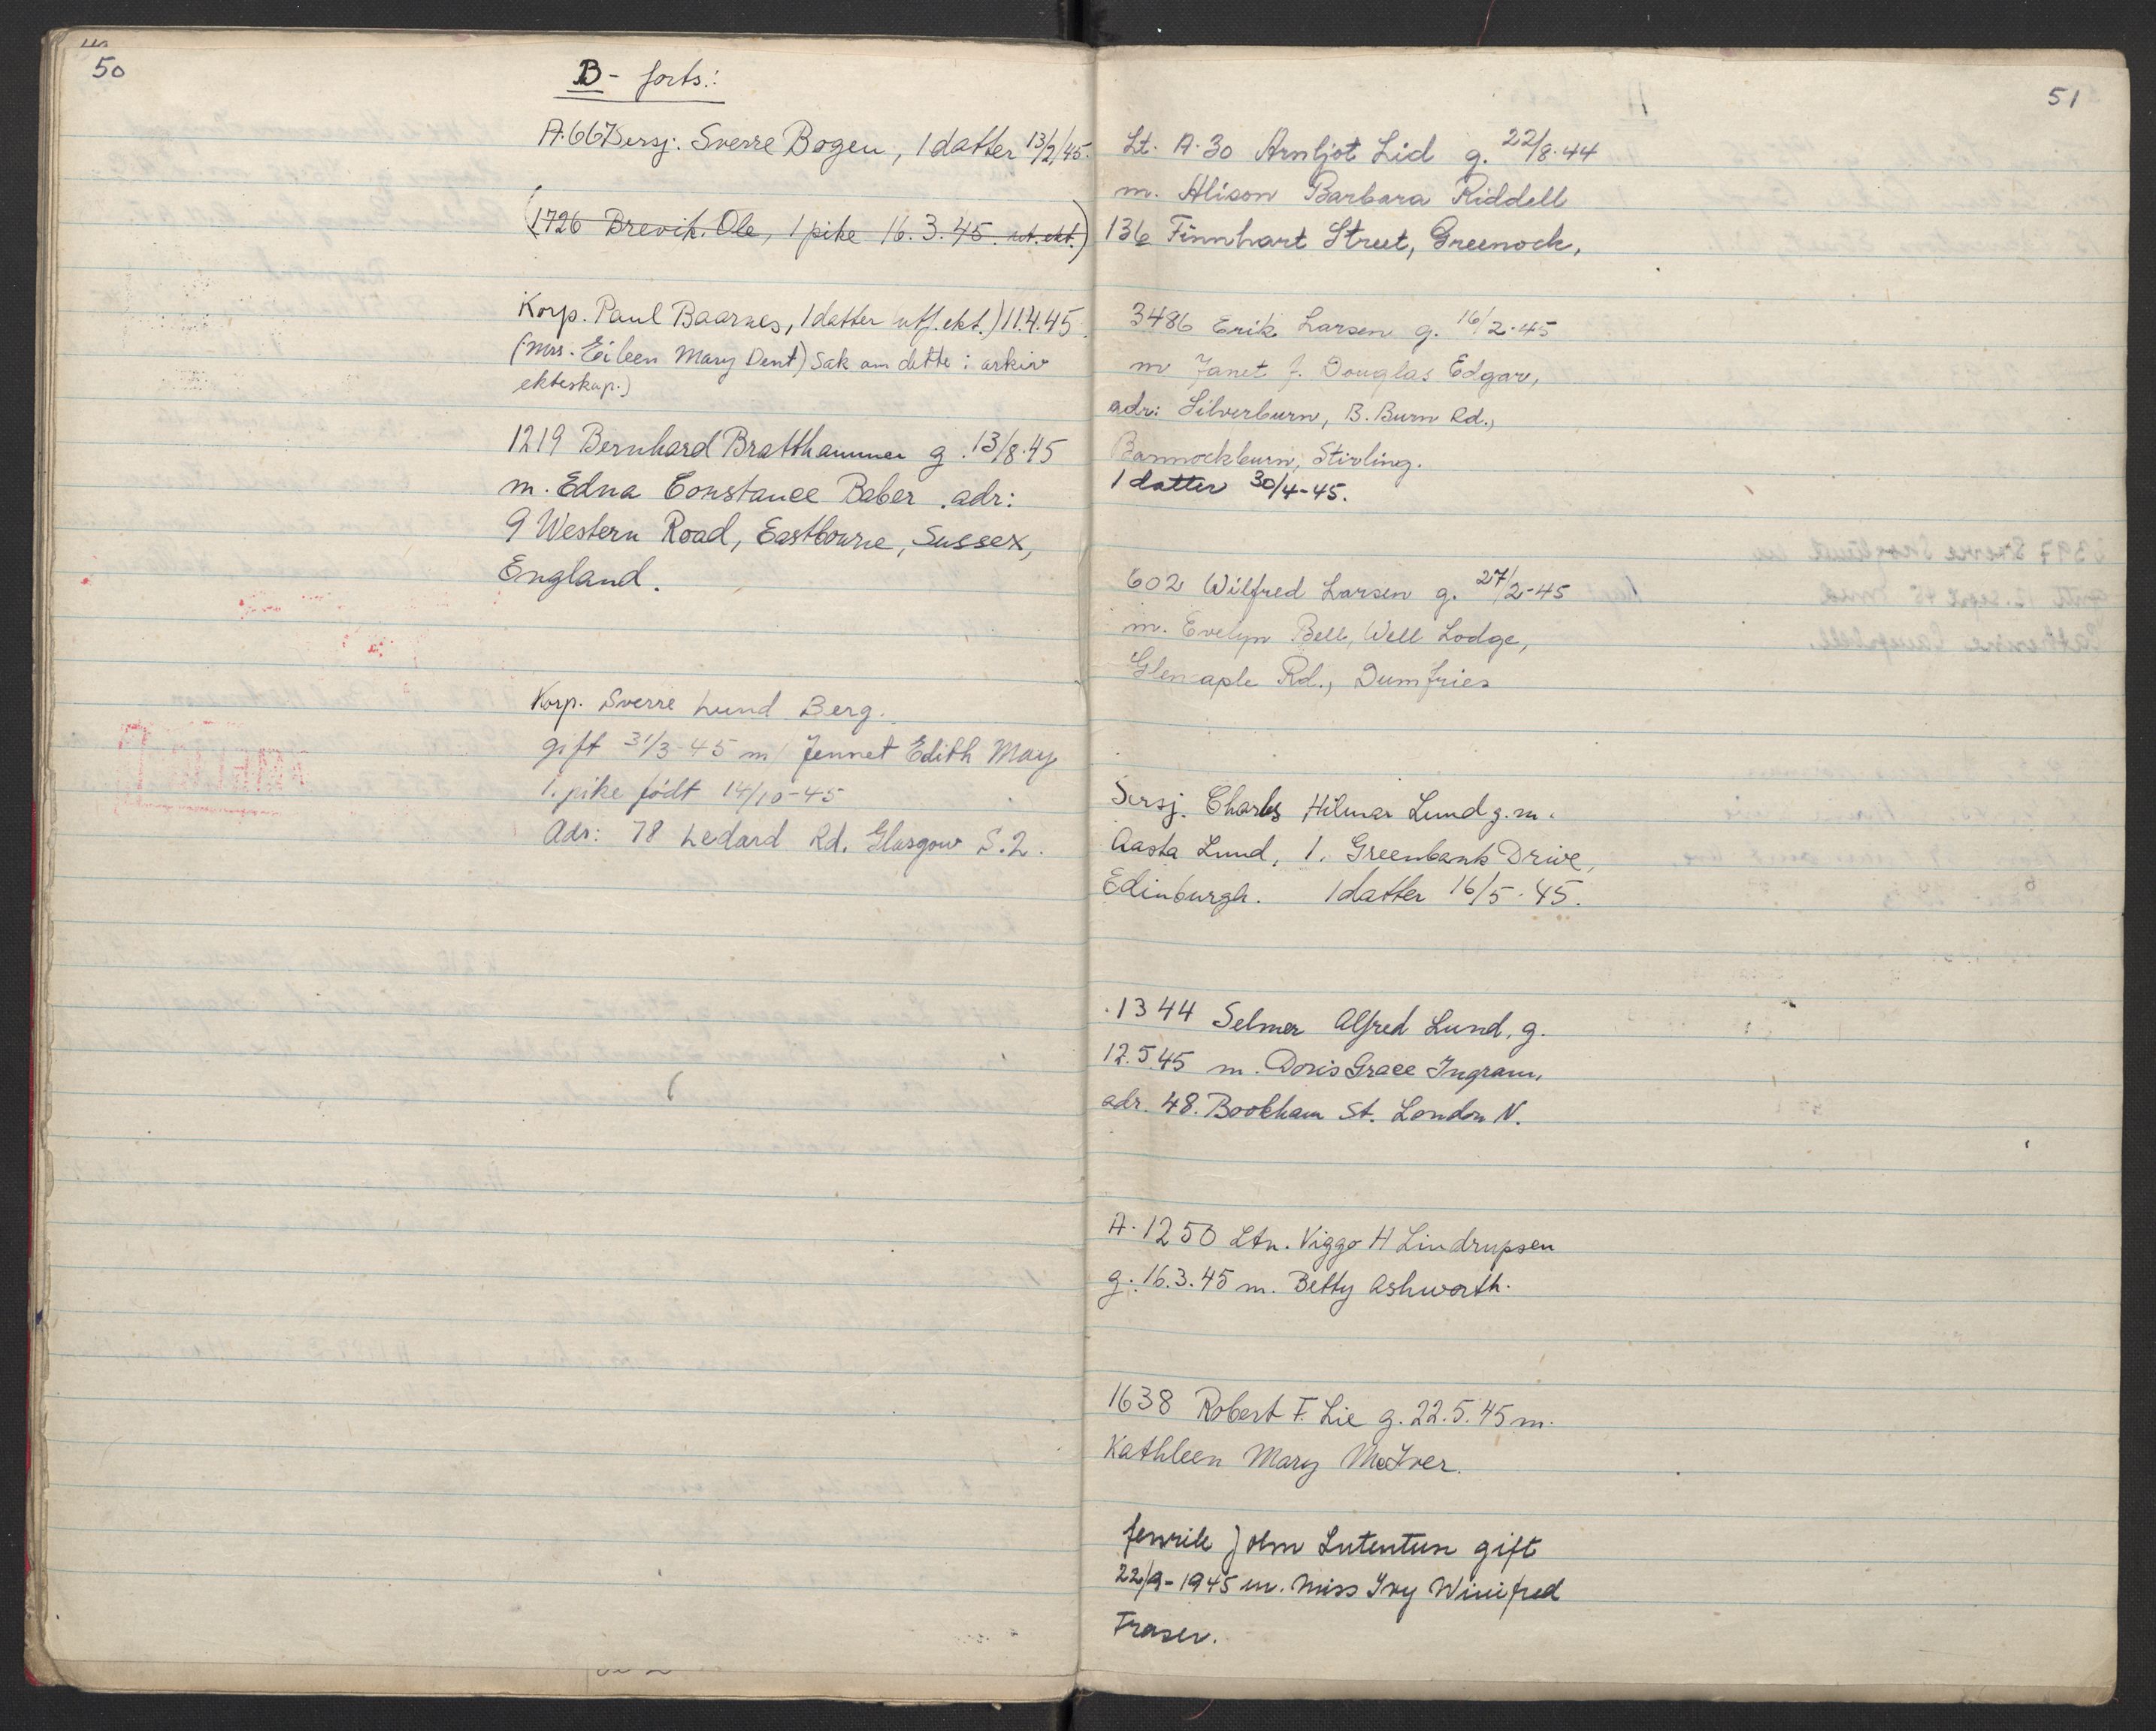 50
B - forts.:
A.667 Sersj. Sverre Bogen, 1 datter 13/2/45.
(1726 Brevik. Ole, 1 pike 16.3.45. utf. ekt.)
Korp. Paul Baarnes, 1 datter utf. ekt.) 11.4.45.
(Mrs. Eileen Mary Dent) Sak om dette i arkiv
ekteskap.)
1219 Bernhard Bratthammer g. 13/8.45
m. Edna Constance Baber. adr:
9 Western Road, Eastbourne, Sussex,
England.
Korp. Sverre Lund Berg.
gift 31/3-45 m/ Jennet Edith May
1. pike födt 14/10-45
Adr: 78 Ledard Rd. Glasgow S.2.
51
Lt. A.30 Arnljot Lid g. 22/8.44
m. Alison Barbara Riddell
136 Finnhart Street, Greenock,
3486 Erik Larsen g. 16/2.45
m Janet J. Douglas Edgar,
adr: Silverburn, B. Burn Rd.,
Bannockburn, Stirling.
1 datter 30/4-45.
602 Wilfred Larsen g. 27/2-45
m. Evelyn Bell, Well Lodge,
Glencaple Rd., Dumfries
Sersj. Charles Hilmar Lund g.m.
Aasta Lund, 1. Greenbank Drive,
Edinburgh. 1 datter 16/5.45.
1344 Selmer Alfred Lund, g.
12.5.45 m. Doris Grace Ingram,
adr. 48. Bookham St. London N.
A.1250 Ltn. Viggo H Lindrupsen
g. 16.3.45 m. Betty Ashworth.
1638 Robert F. Lie g. 22.5.45 m.
Kathleen Mary McIver.
fenrik John Lutentun gift
22/9-1945 m. Miss Ivy Winifred
Fraser.